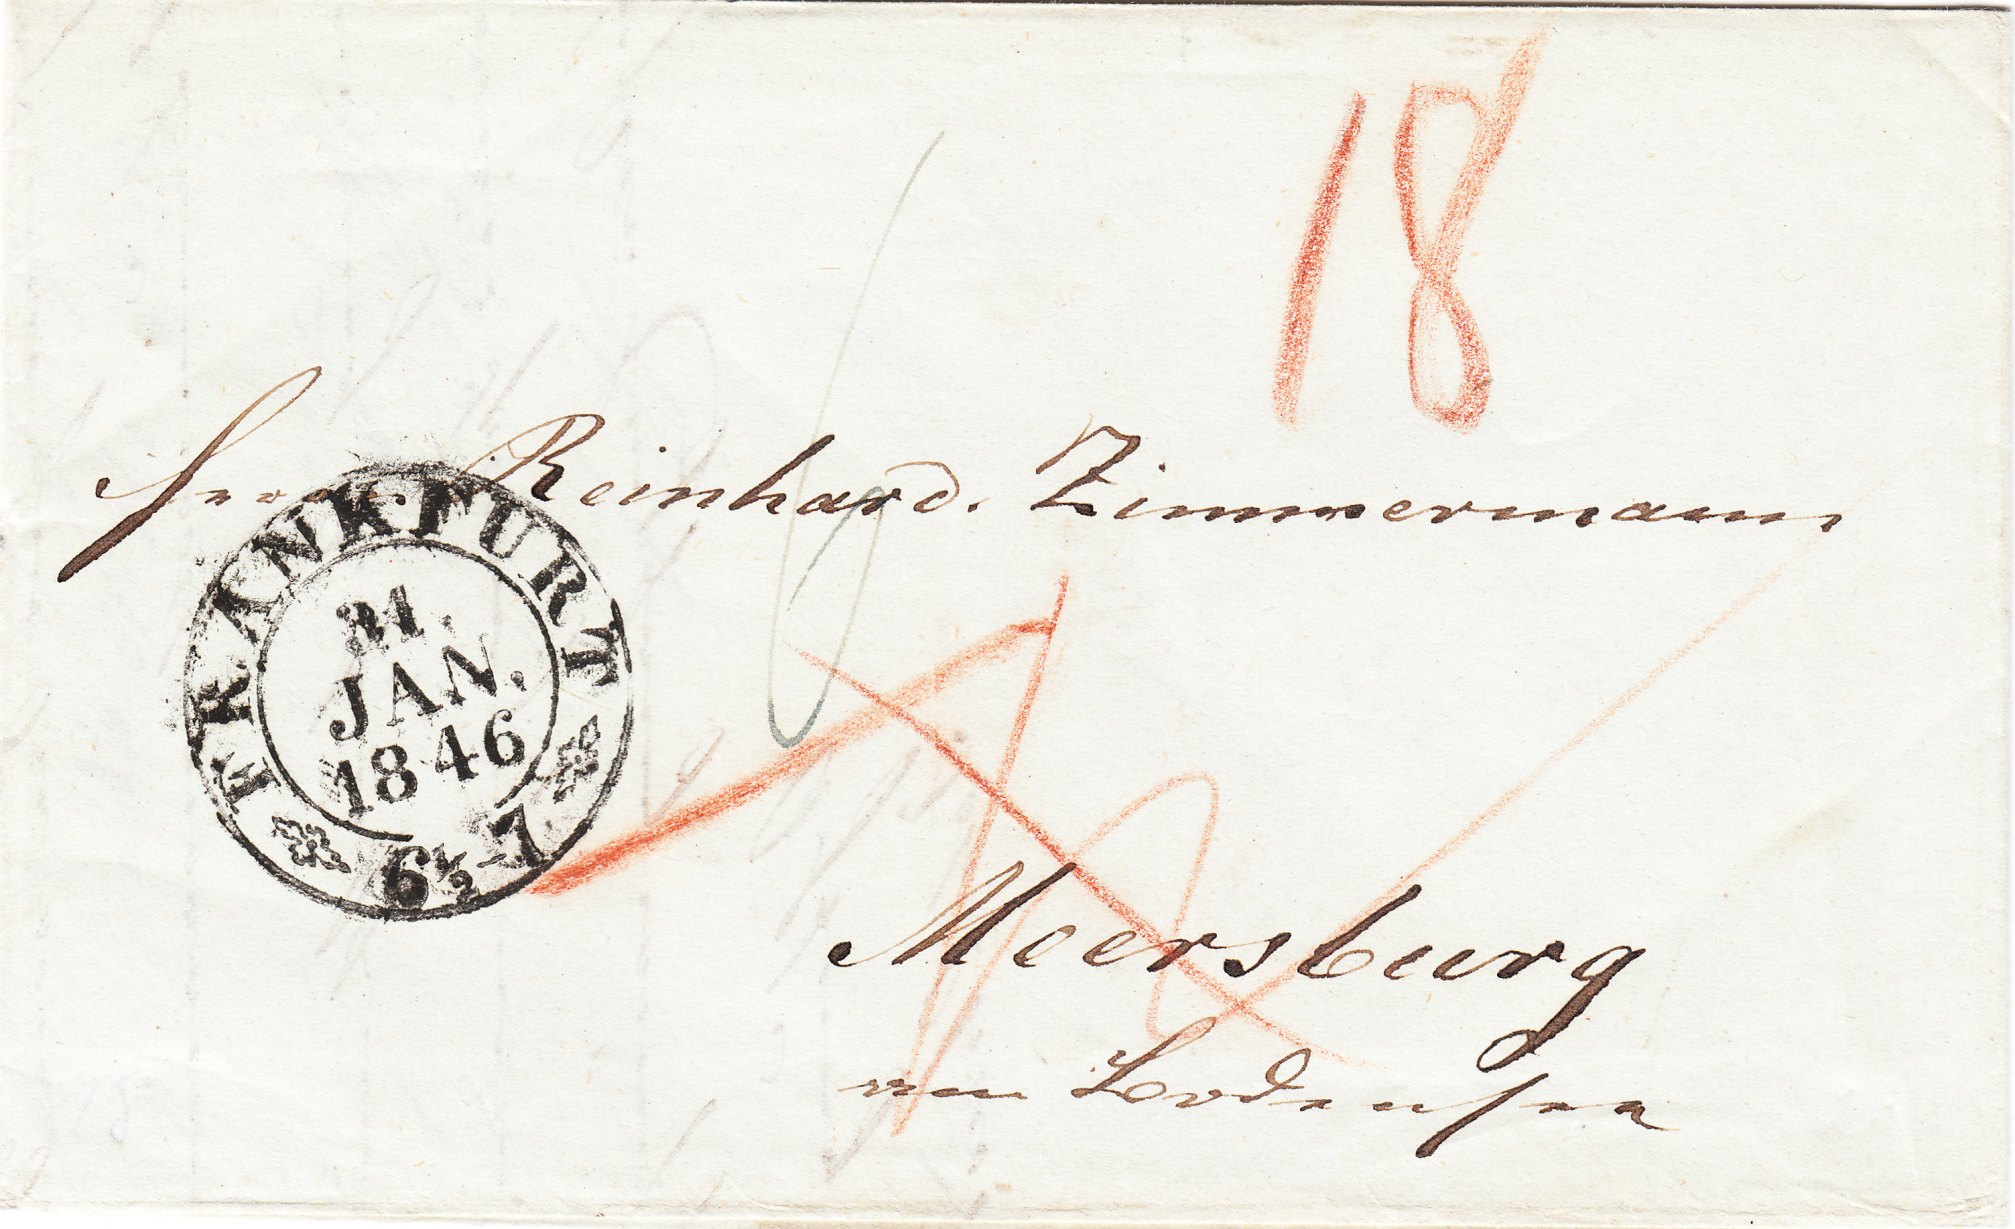 18
Herrn Reinhard Zimmermann
FRANKFURT
31.
JAN.
1846
6½-7
Meersburg
am Bodensee